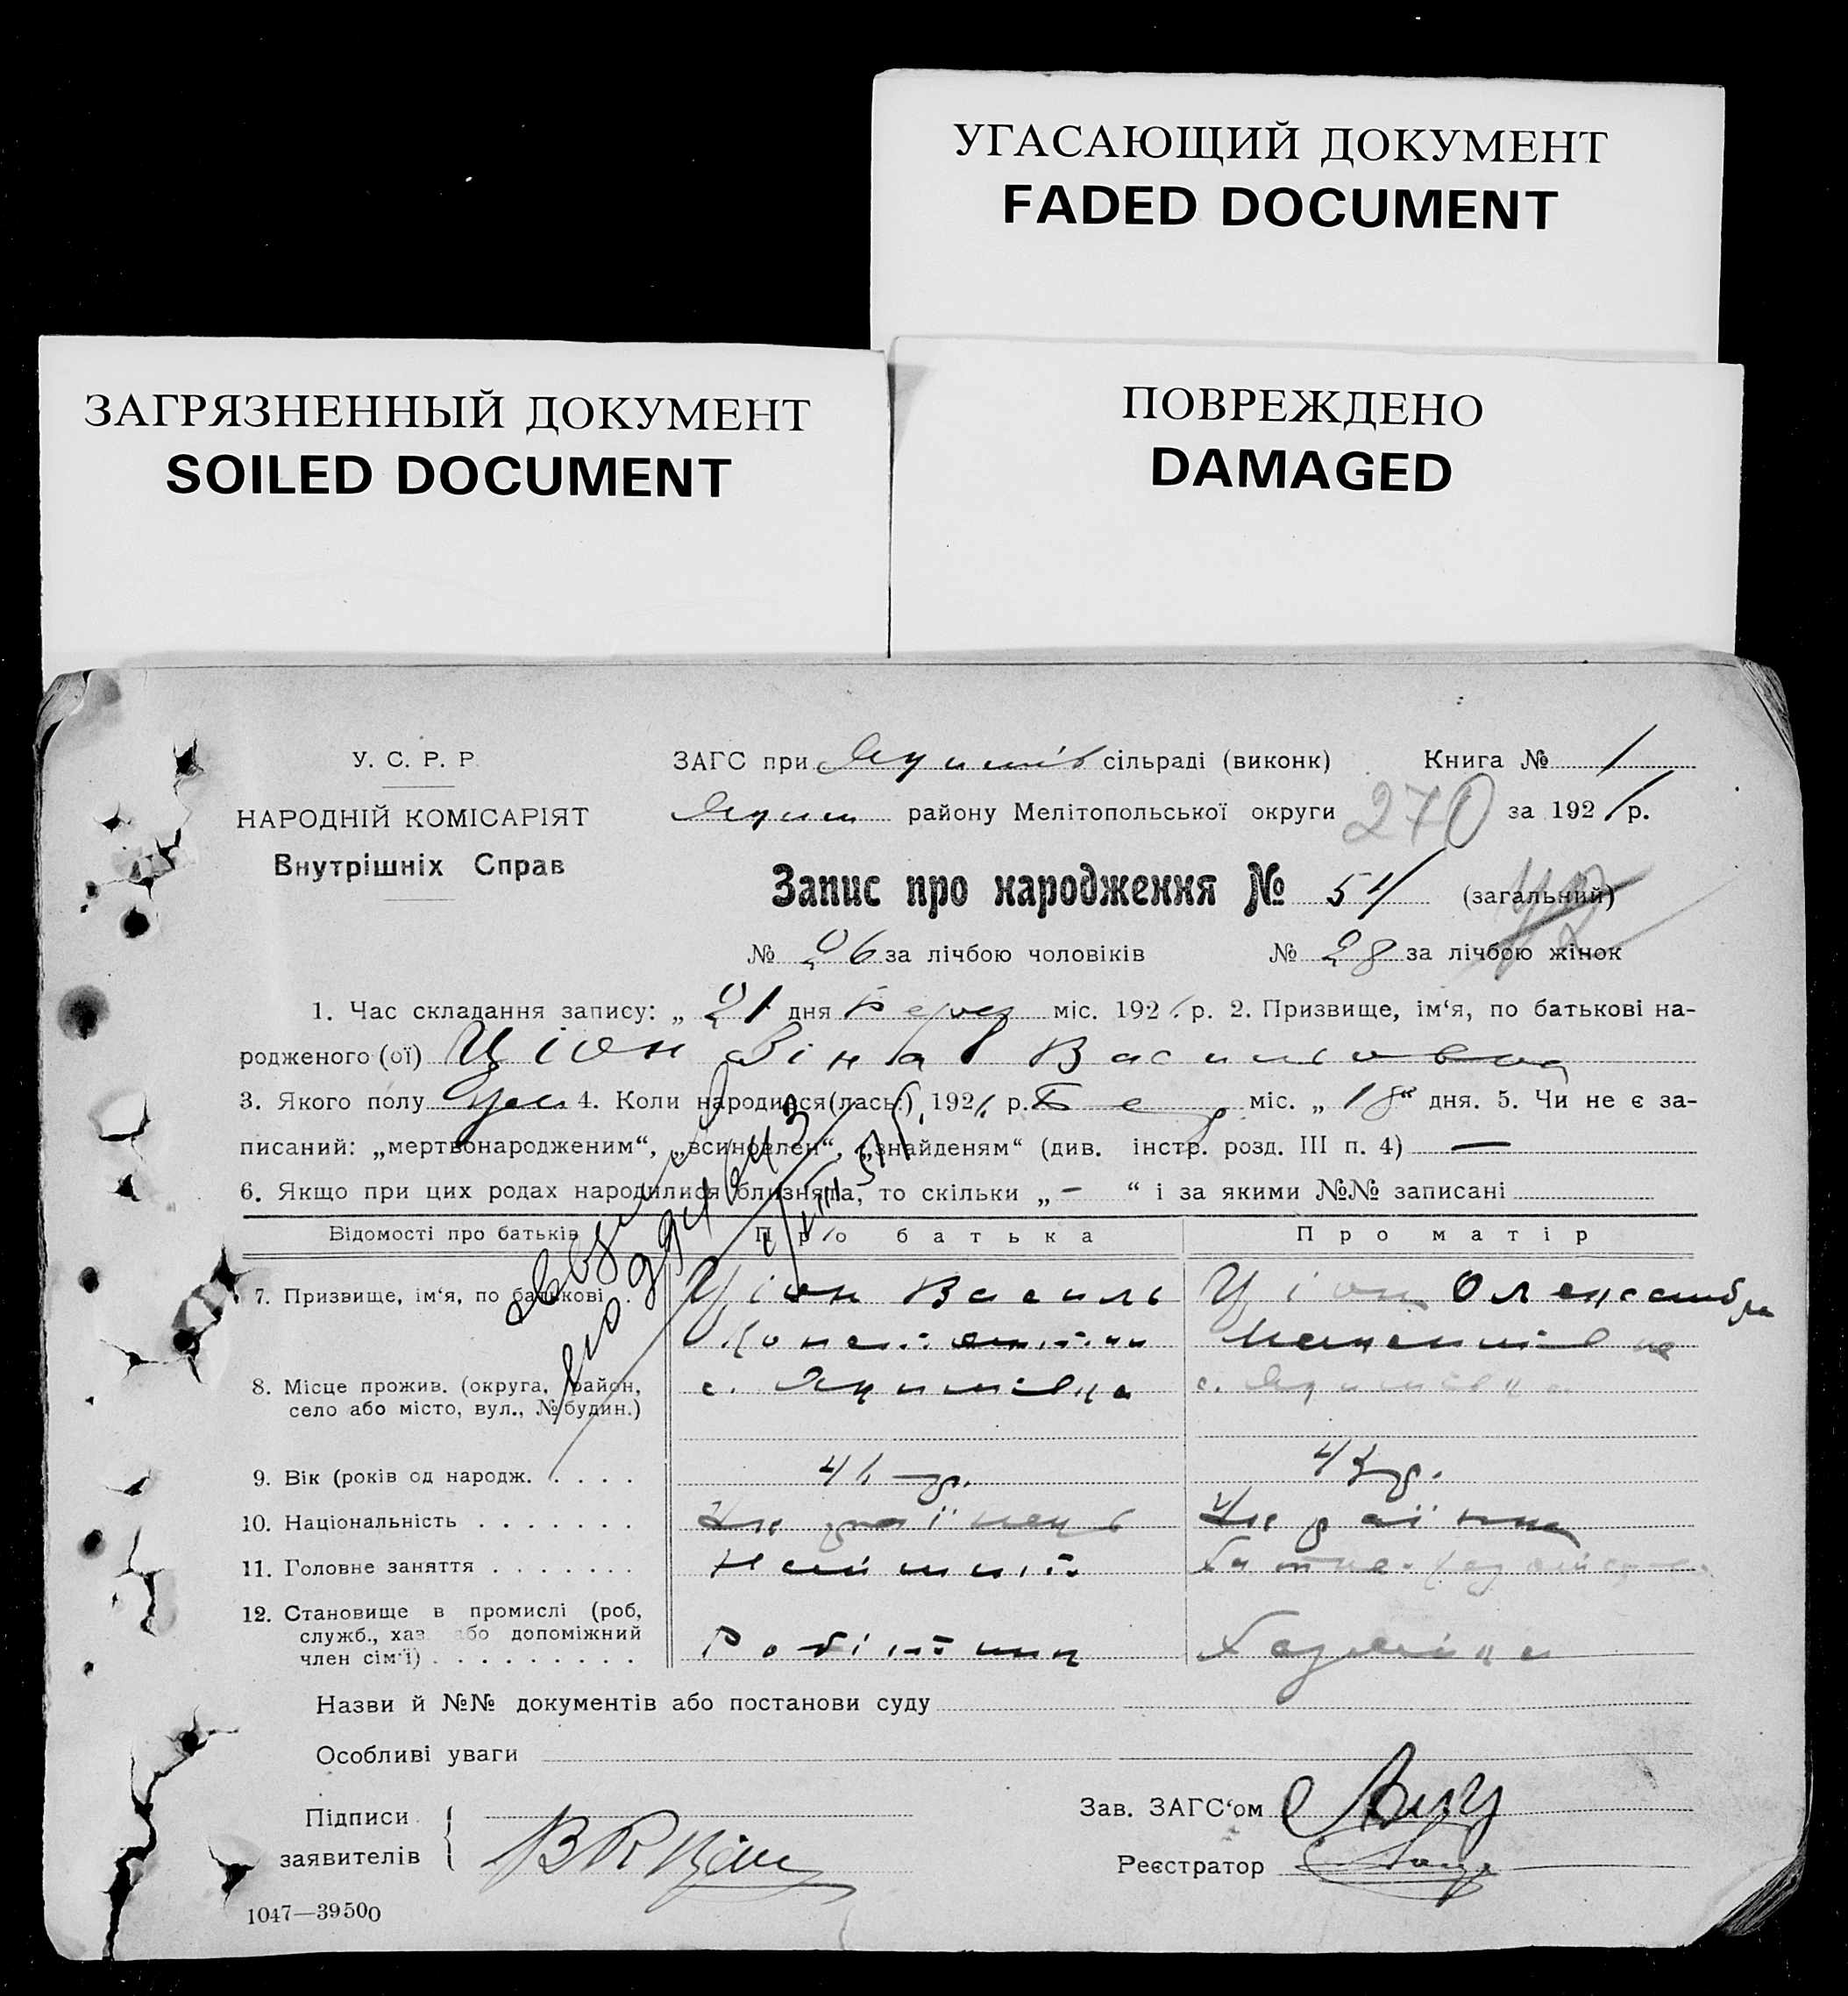 УГАСАЮЩИЙ ДОКУМЕНТ
FADED DOCUMENT
ЗАГРЯЗНЕННЫЙ ДОКУМЕНТ
SOILED DOCUMENT
ПОВРЕЖДЕНО
DAMAGED
У. С. Р. Р.
НАРОДНІЙ КОМІСАРІЯТ
Внутрішніх Справ
ЗАГС при Якимів сільраді (виконк) Книга № 1
Яким району Мелітопольської округи 270 за 192 р.
Запис про народження № 54 (загальний)
№ 26 за лічбою чоловіків № 28 за лічбою жінок
1. Час складання запису: „ 21 дня міс. 192 р. 2. Призвище, ім‘я, по батькові на-
родженого (ої) Ціон Зіна Васильовна
3. Якого полу жін 4. Коли народився(лась) 192 р. міс. „ 18 “ дня. 5. Чи не є за-
писаний: „мертвонародженим“, „всиновлен“, „знайденям“ (див. інстр. розд. III п. 4) —
6. Якщо при цих родах народилися близнята, то скільки „ – “ і за якими №№ записані
Відомості про батьків Про батька Про матір
7. Призвище, ім‘я, по батькові Ціон Василь Ціон Олександра
8. Місце прожив. (округа, район, с. Якимівка с. Якимівка
село або місто, вул., № будин.)
9. Вік (років од народж. 41 р. 43 р.
10. Національність Українець Українка
11. Головне заняття
12. Становище в промислі (роб,
служб., хаз. або допоміжний
член сім‘ї) Робітник Хазяйка
Назви й №№ документів або постанови суду
Особливі уваги
Підписи
заявителів В К Ціон
Зав. ЗАГС‘ом
Реєстратор
1047—39500